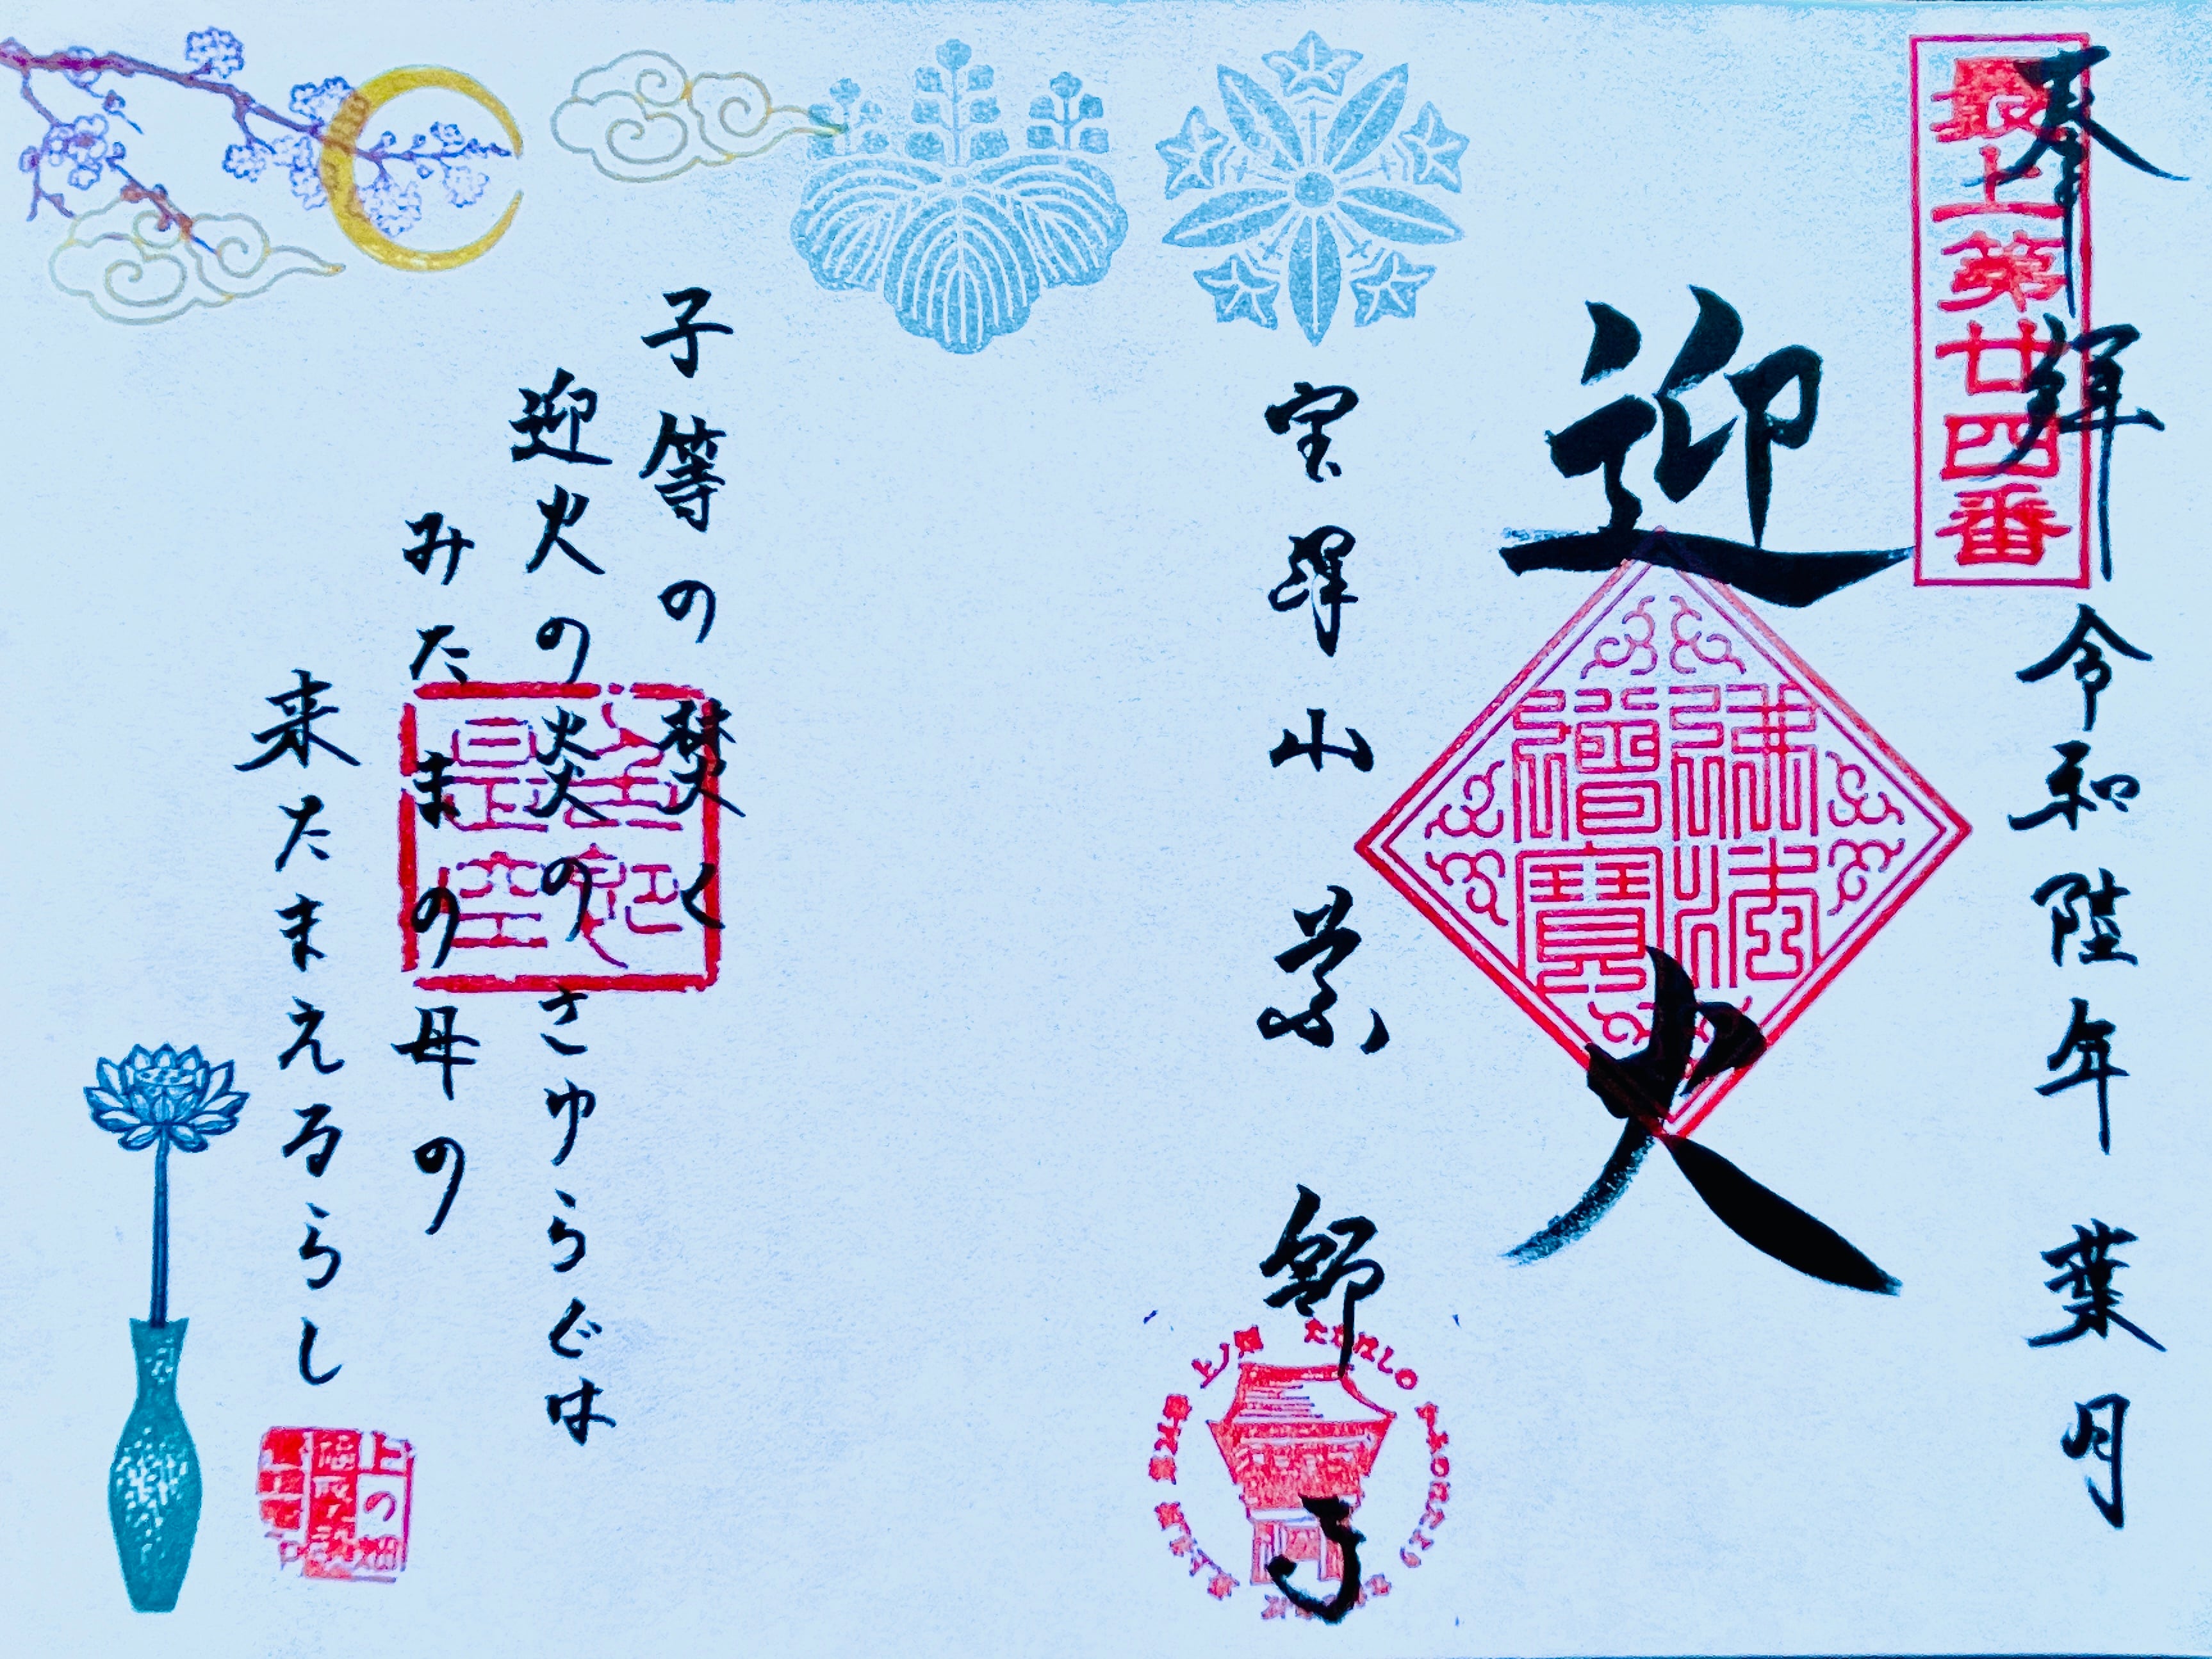 奉拝
令和陸年葉月
最上第廿四番
迎火
佛法
僧寶
宝澤山薬師寺
子等の焚く
迎火の炎のさゆらぐは
みたまの母の
来たまえるらし
上の畑